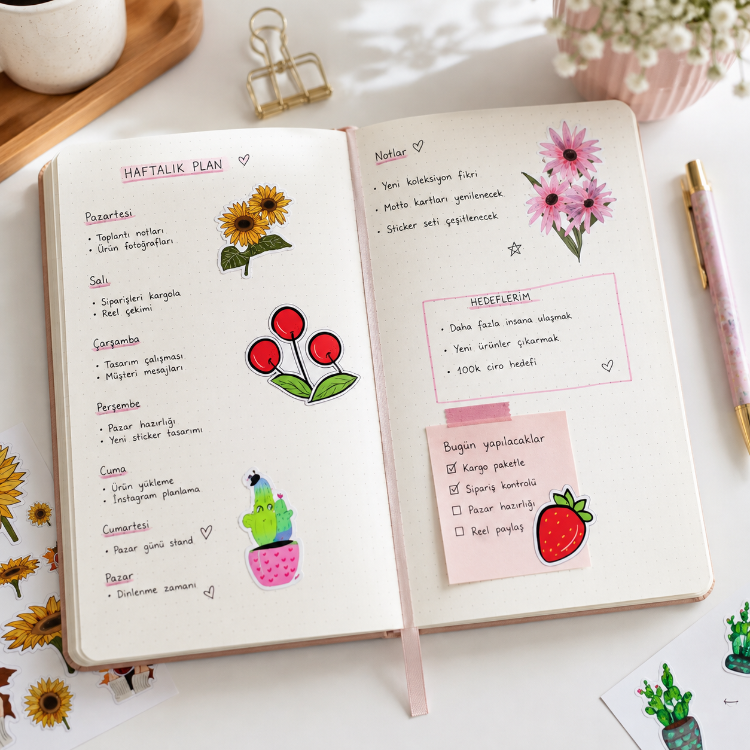 HAFTALIK PLAN
Pazartesi
• Toplantı notları
• Ürün fotoğrafları
Salı
• Siparişleri kargola
• Reel çekimi
Çarşamba
• Tasarım çalışması
• Müşteri mesajları
Perşembe
• Pazar hazırlığı
• Yeni sticker tasarımı
Cuma
• Ürün yükleme
• Instagram planlama
Cumartesi
• Pazar günü stand
Pazar
• Dinlenme zamanı
Notlar
• Yeni koleksiyon fikri
• Motto kartları yenilenecek
• Sticker seti çeşitlenecek
HEDEFLERİM
• Daha fazla insana ulaşmak
• Yeni ürünler çıkarmak
• 100k ciro hedefi
Bugün yapılacaklar
☑ Kargo paketle
☑ Sipariş kontrolü
☐ Pazar hazırlığı
☐ Reel paylaş